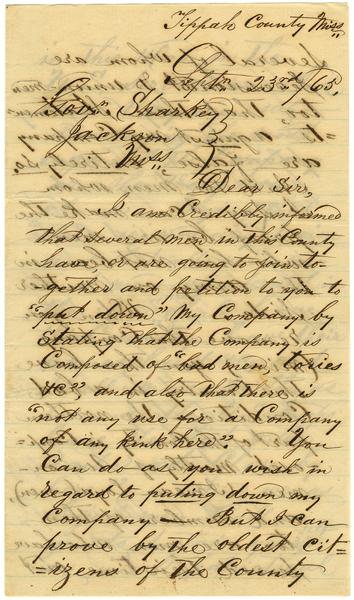 Tippah County Miss
Septr. 23rd/65,
Govr. Sharkey
Jackson
Miss
Dear Sir,
I am Credibly informed
that several men in this County
have, or are going to join to-
gether and petition to you to
"put down" My Company by
Stating that the Company is
Composed of "bad men, tories
&c" and also that there is
"not any use for a Company
of any kink here". You
Can do as you wish in
regard to puting down my
Company — But I can
prove by the oldest cit-
=izens of the County